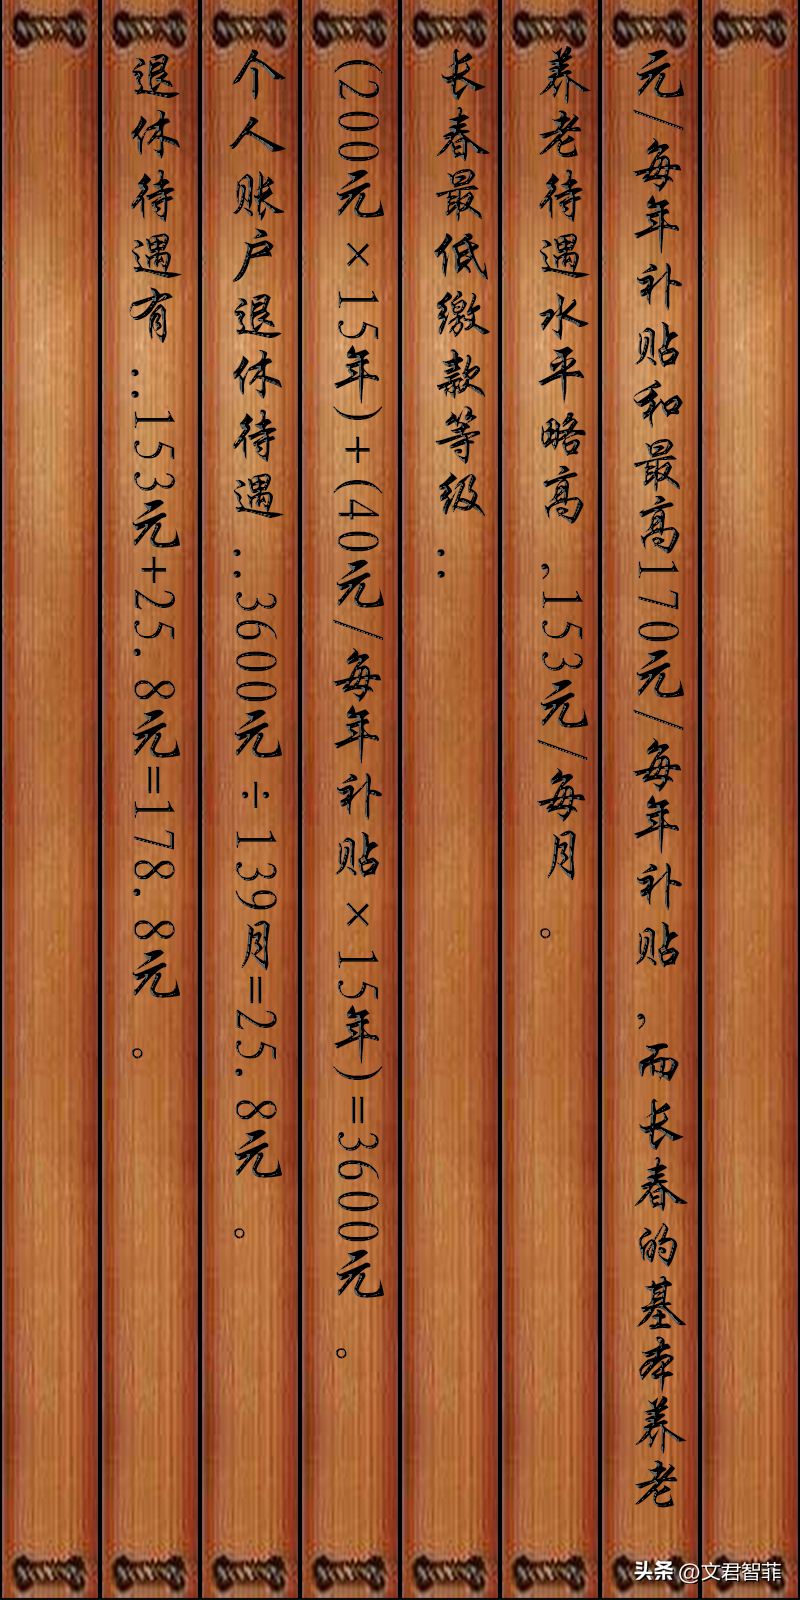 元/每年补贴和最高170元/每年补贴,而长春的基本养老
养老待遇水平略高,153元/每月。
长春最低缴款等级:
(200元×15年)+(40元/每年补贴×15年)=3600元。
个人账户退休待遇:.3600元÷139月=25.8元。
退休待遇有:.153元+25.8元=178.8元。
头条 @文君智菲